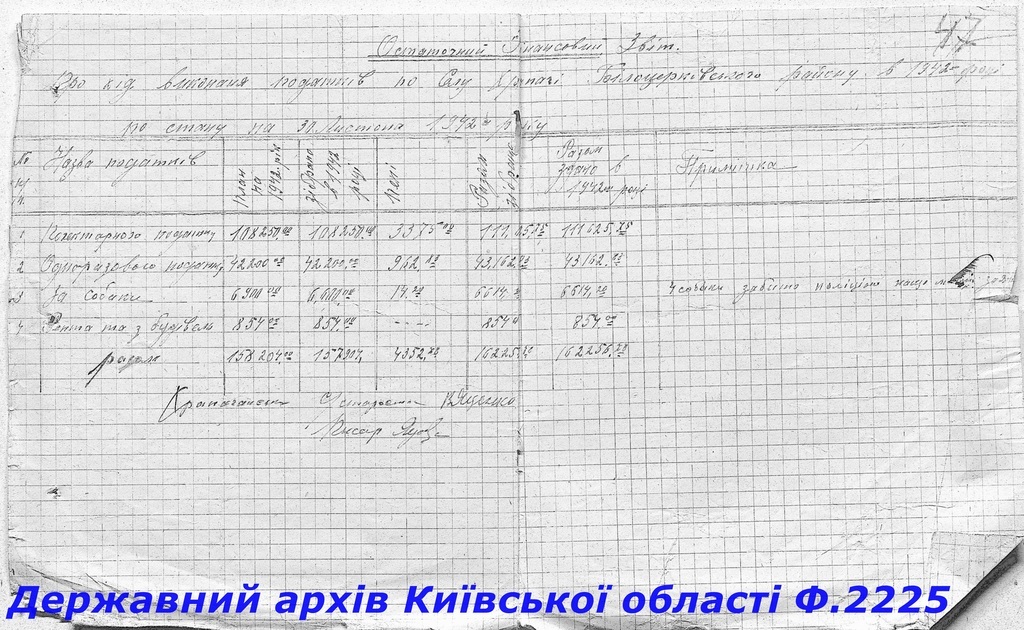 47
Остаточний Фінансовий Звіт.
Про хід виконаня податків по Селу Храпачі Білоцерківського району в 1942 році
по стану на 30 Листопа 1942 року
№ п. п. Назва податків План на 1942 рік зібрано в 1942 році Пені Разом зібрано Разом здано в 1942 році Примітка
1 податку 108250,00 108250,00 3375 00 111625,25
2 Одноразового податку 42200 00 42200,00 962 43,162 43162
3 За собаки 6900 00 6,600,00 14 6614, 6614, 4 собаки забито поліцією
4 Рента та з будівель 854 00 854,00 ---- 854 854,00
разом 158204,00 157904, 4352, 162256,
Храпачанський Староста
Писар
Державний архів Київської області Ф.2225